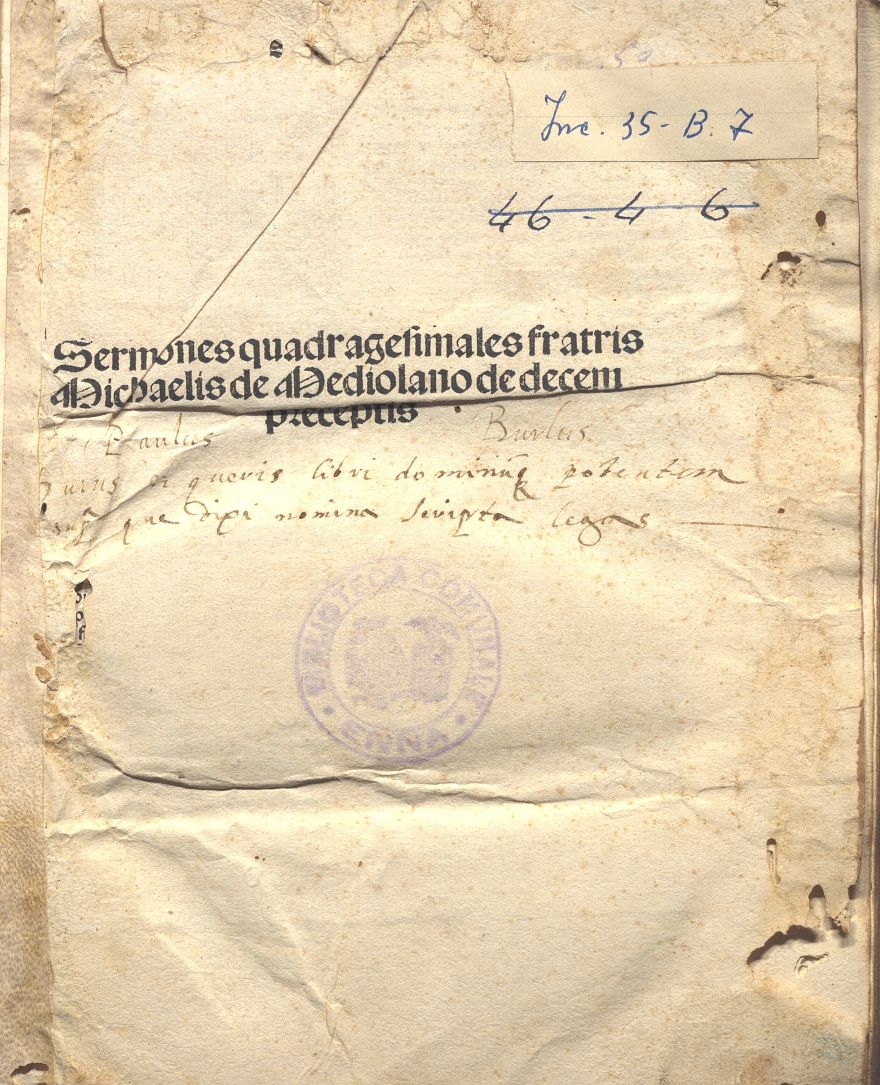 Inc. 35 - B. 7
46 - 4 6
Sermones quadragesimales fratris
Michaelis de Mediolano de decem
preceptis
Paulus Burlus
si queris libri dominūq potentem
que dixi nomina scripta legas
BIBLIOTECA COMUNALE
ENNA